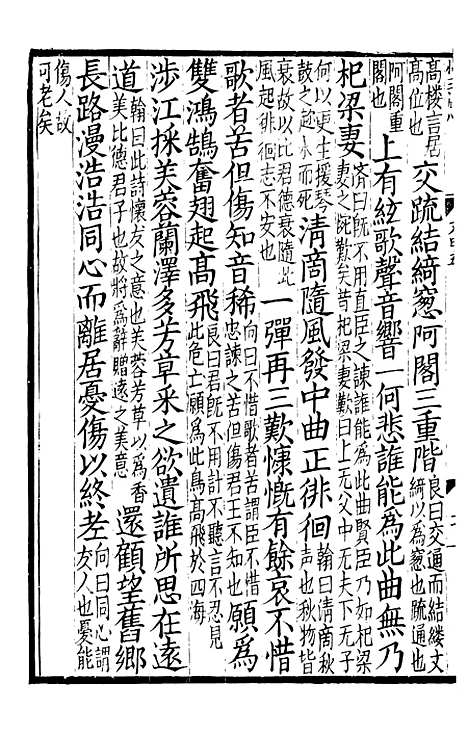 高樓言居高位也交疏結綺窻阿閣三重階良曰交通而結縷文綺以為窻也疏通也
阿閣重閣也上有絃歌聲音響一何悲誰能為此曲無乃
杞梁妻濟曰旣不用直臣之諫誰能為此曲賢臣乃如杞梁妻之惋歎矣昔杞梁妻歎曰上無父中無夫下無子
何以更生援琴鼓之赴水而死清商隨風發中曲正徘徊翰曰清商秋聲也秋物皆
衰故以比君德衰隨此風起徘徊志不安也一彈再三歎慷慨有餘哀不惜
歌者苦但傷知音稀向曰不惜歌者苦謂臣不惜忠諫之苦但傷君王不知也願為
雙鴻鵠奮翅起高飛良曰君旣不用計不聽言不忍見此危亡願為此鳥高飛於四海
涉江採芙蓉蘭澤多芳草采之欲遺誰所思在遠
道翰曰此詩懷友之意也芙蓉芳草以為香美比德君子也故將為辭贈遠之美意還顧望舊鄉
長路漫浩浩同心而離居憂傷以終老向曰同心謂友人也憂能
傷人故可老矣